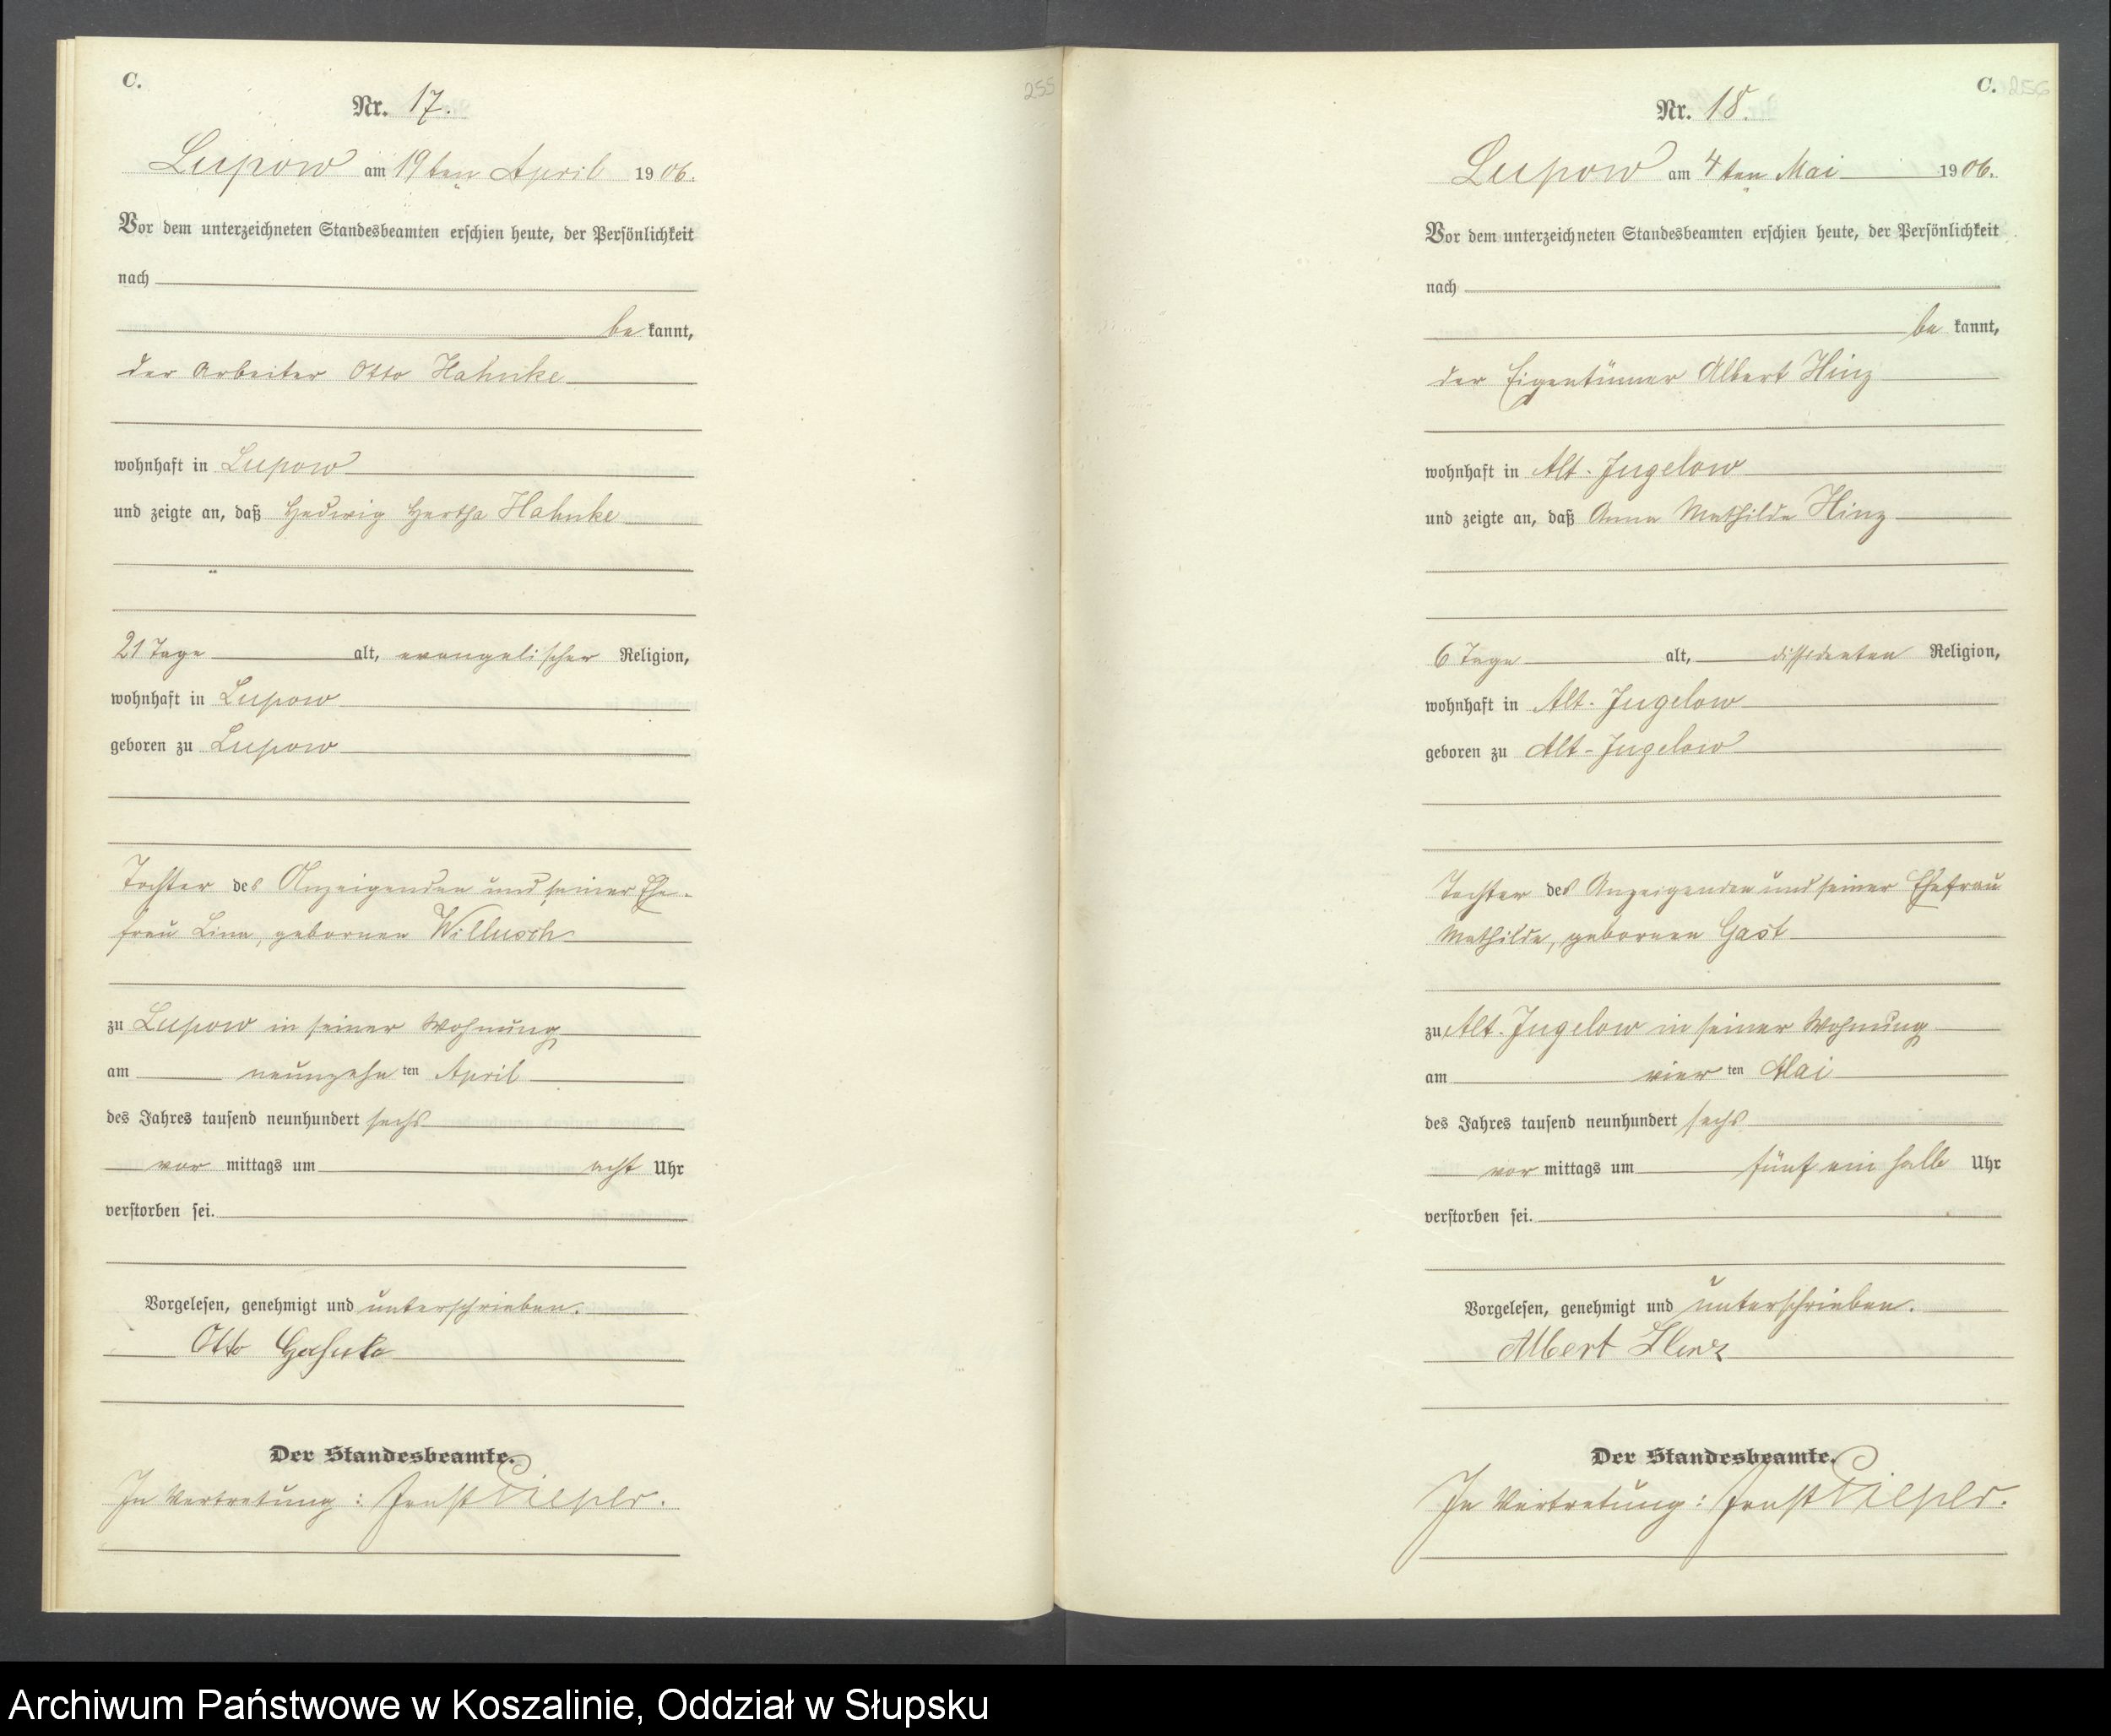 C.
255
Nr. 17.
Lupow am 19ten April 1906.
Vor dem unterzeichneten Standesbeamten erschien heute, der Persönlichkeit
nach
be kannt,
der Arbeiter Otto Hahnke
wohnhaft in Lupow
und zeigte an, daß Hedwig Hertha Hahnke
21 Tage alt, evangelischer Religion,
wohnhaft in Lupow
geboren zu Lupow
Tochter des Anzeigenden und seiner Ehe-
frau Lina, geborenen Willusch
zu Lupow in seiner Wohnung
am neunzehn ten April
des Jahres tausend neunhundert sechs
vor mittags um acht Uhr
verstorben sei.
Vorgelesen, genehmigt und unterschrieben.
Otto Hahnke
Der Standesbeamte.
In Vertretung: Ernst Pieper.
C. 256
Nr. 18.
Lupow am 4ten Mai 1906.
Vor dem unterzeichneten Standesbeamten erschien heute, der Persönlichkeit
nach
be kannt,
der Eigentümer Albert Hinz
wohnhaft in Alt-Jugelow
und zeigte an, daß Anna Mathilde Hinz
6 Tage alt, dissidenten Religion,
wohnhaft in Alt-Jugelow
geboren zu Alt-Jugelow
Tochter des Anzeigenden und seiner Ehefrau
Mathilde, geborenen Gast
zu Alt-Jugelow in seiner Wohnung
am vier ten Mai
des Jahres tausend neunhundert sechs
vor mittags um fünf ein halb Uhr
verstorben sei.
Vorgelesen, genehmigt und unterschrieben.
Albert Hinz
Der Standesbeamte.
In Vertretung: Ernst Pieper.
Archiwum Państwowe w Koszalinie, Oddział w Słupsku